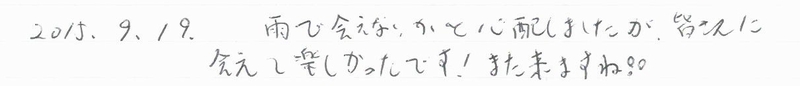 2015. 9. 19. 雨で会えないかと心配しましたが、皆さんに
会えて楽しかったです！また来ますね!!